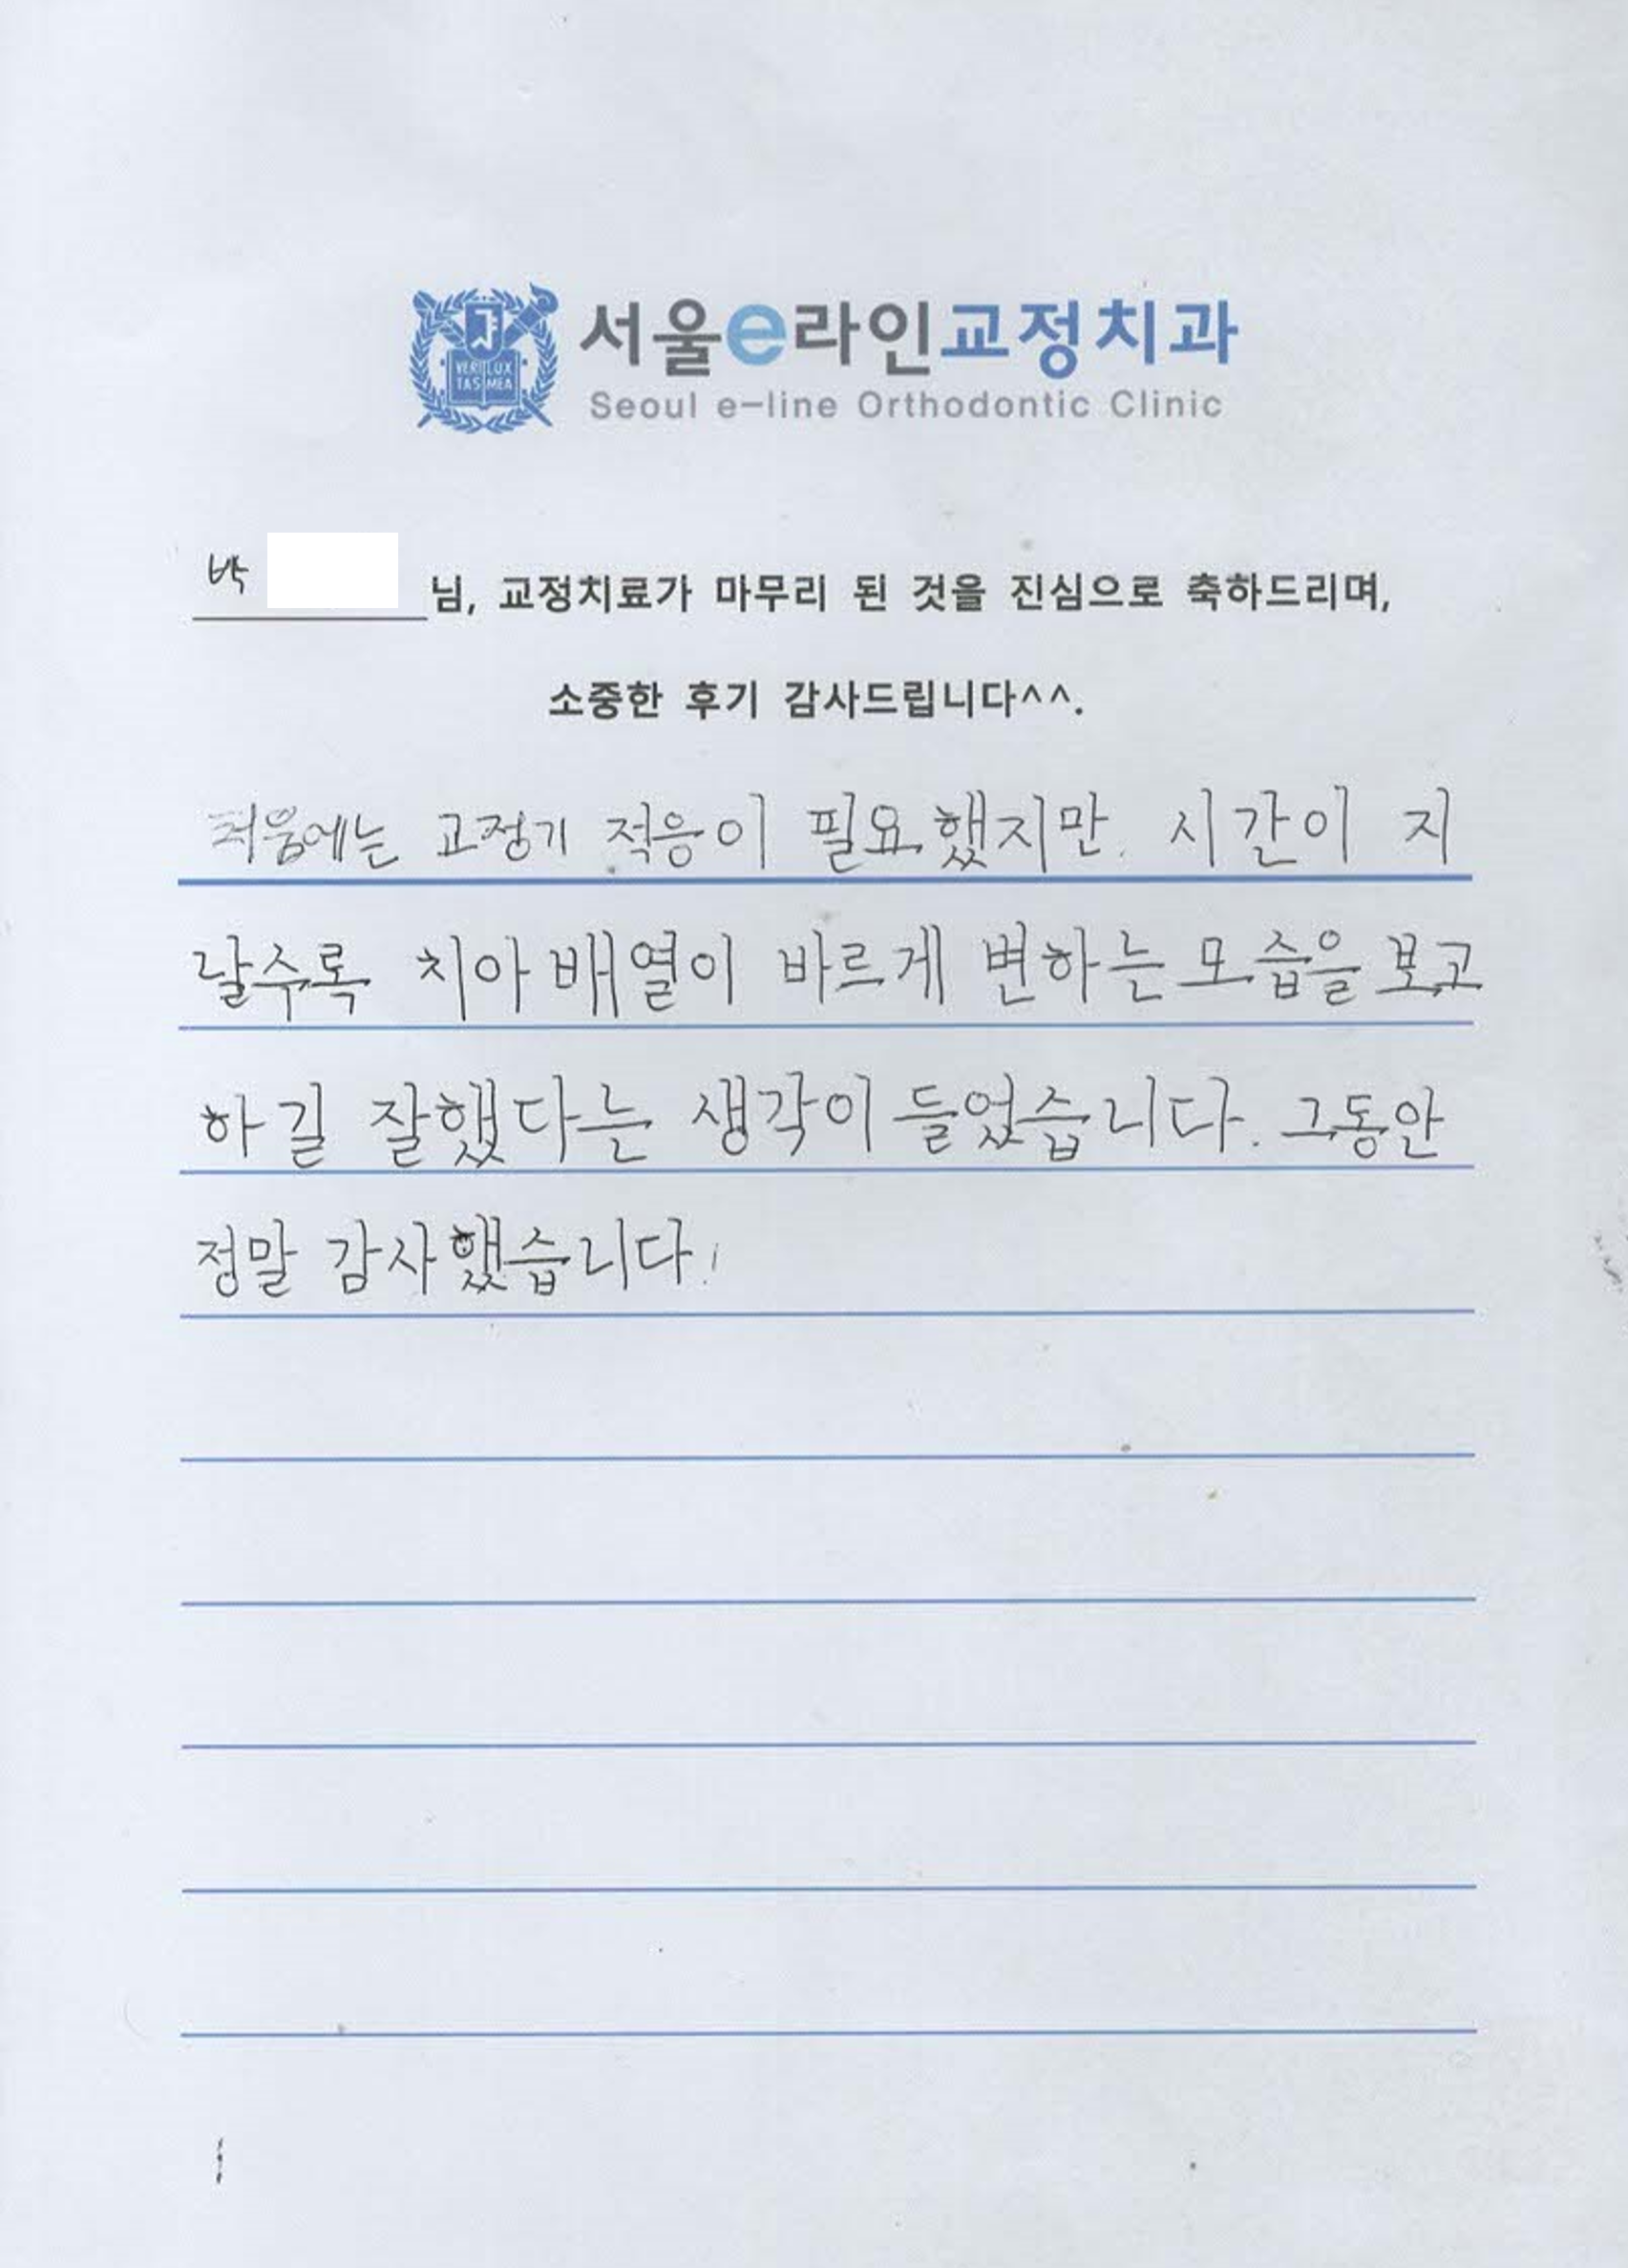 서울e라인교정치과
VERI LUX
TAS MEA
Seoul e-line Orthodontic Clinic
박 님, 교정치료가 마무리 된 것을 진심으로 축하드리며,
소중한 후기 감사드립니다^^.
처음에는 교정기 적응이 필요했지만. 시간이 지
날수록 치아 배열이 바르게 변하는 모습을 보고
하길 잘했다는 생각이 들었습니다. 그동안
정말 감사했습니다!